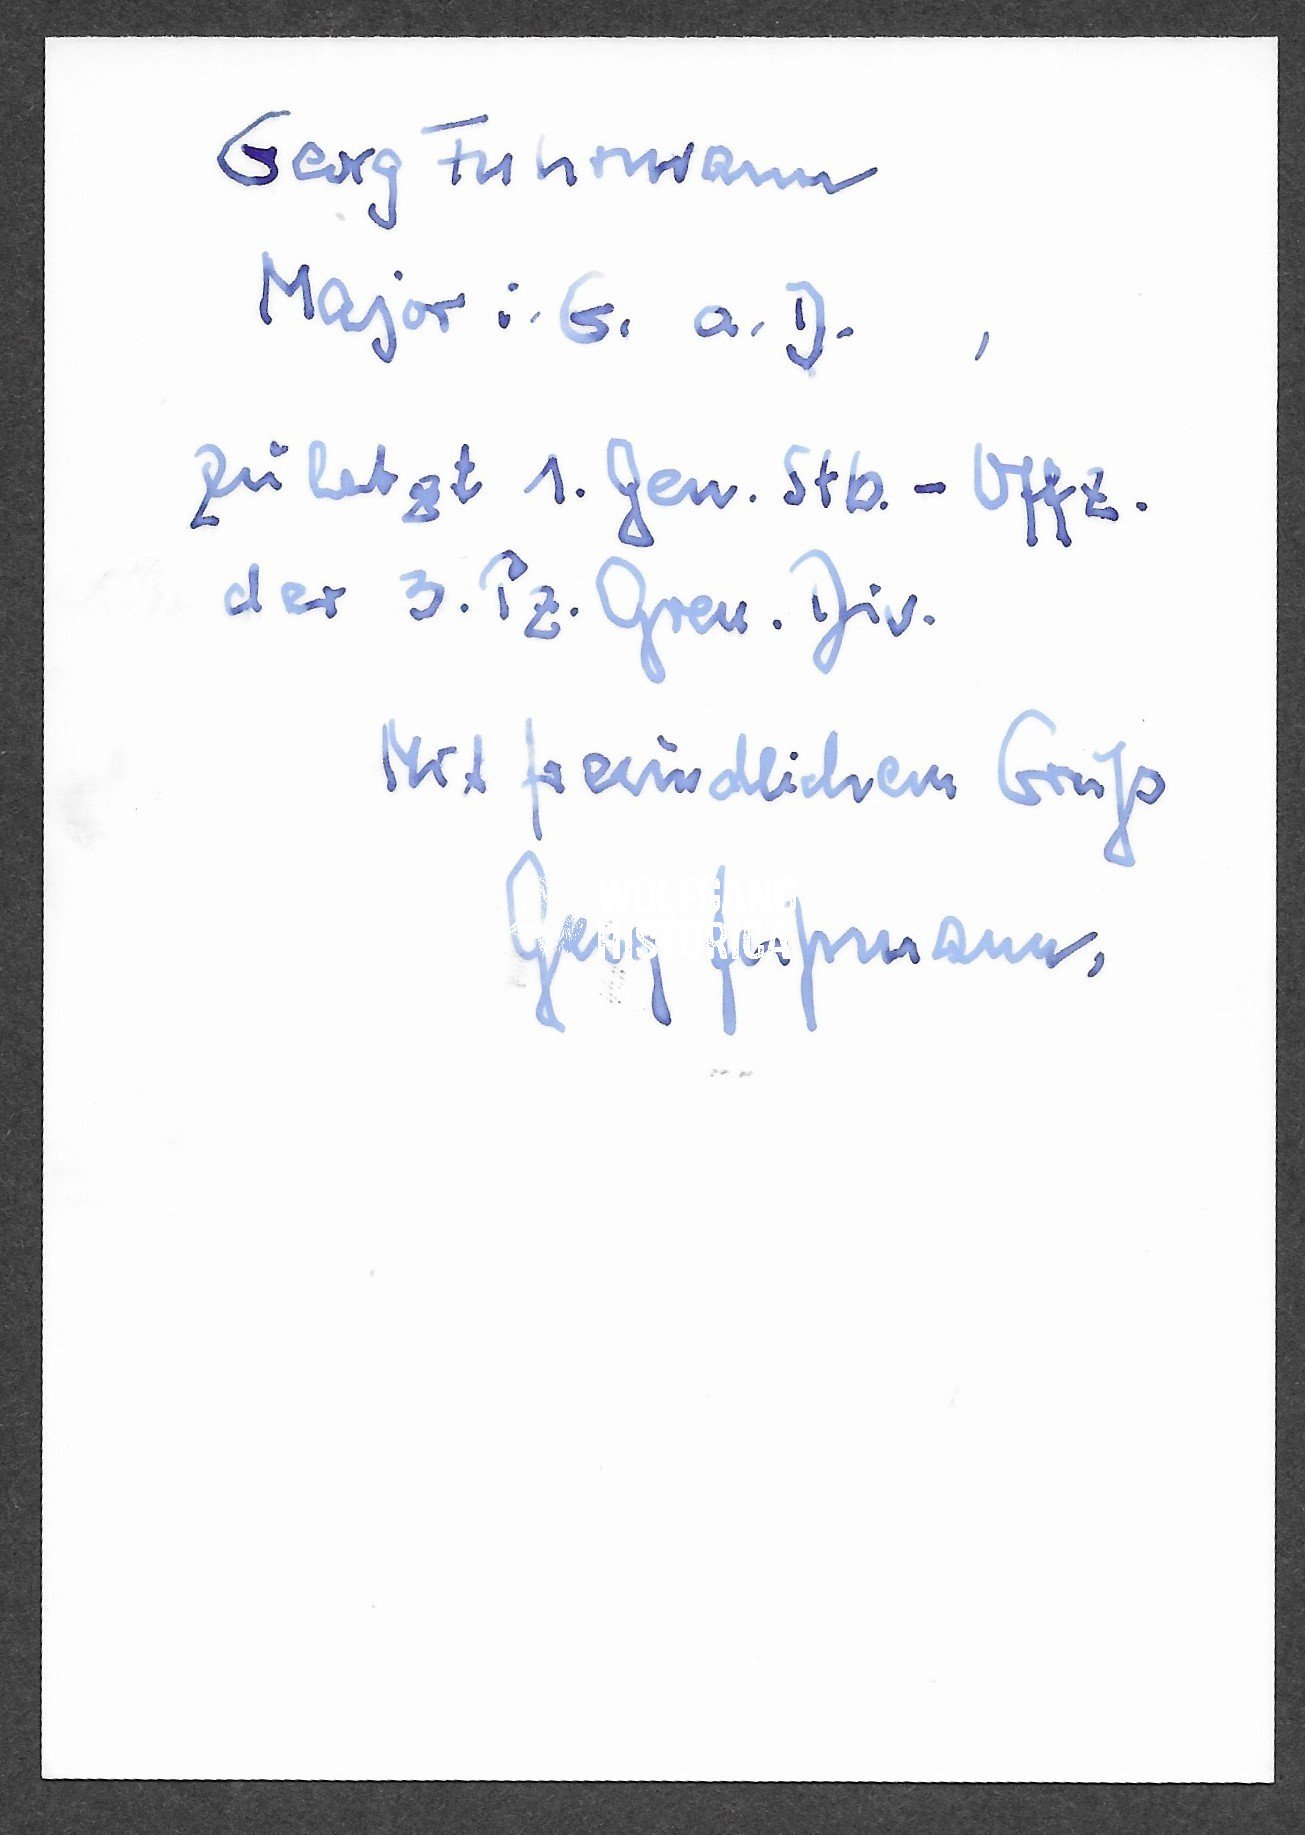 Georg Fuhrmann
Major i. G. a. D. ,
zuletzt 1. Gen. Stb. - Offz.
der 3. Pz. Gren. Div.
Mit freundlichem Gruß
WOLFGANG
HISTORICA
Georg Fuhrmann,